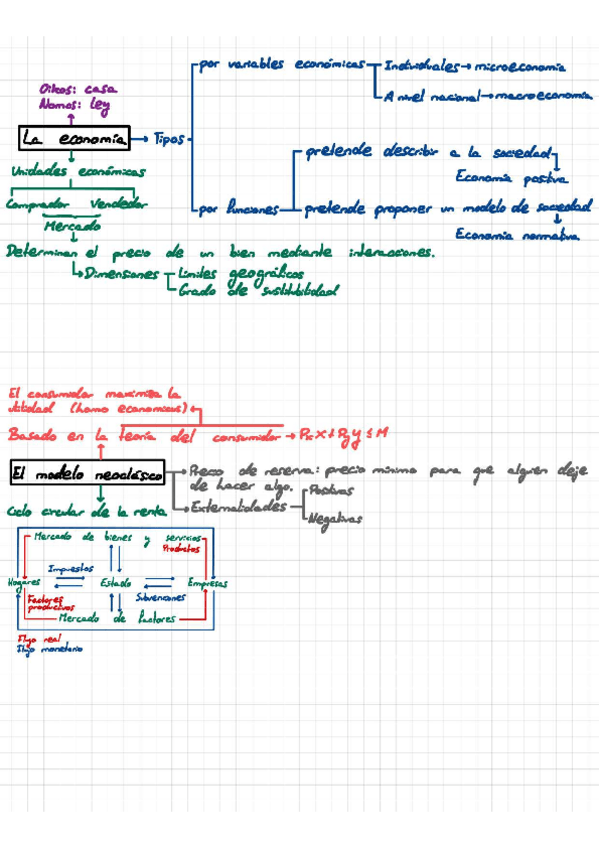 Oikos: casa
Nomos: ley
La economía → Tipos
por variables económicas
Individuales → microeconomía
A nivel nacional → macroeconomía
por funciones
pretende describir a la sociedad
Economía positiva
pretende proponer un modelo de sociedad
Economía normativa
Unidades económicas
Comprador Vendedor
Mercado
Determinan el precio de un bien mediante interacciones.
Dimensiones
Límites geográficos
Grado de sustitubilidad
El consumidor maximiza la
utilidad (homo economicus)
Basado en la teoría del consumidor → Pₓ X + Pᵧ Y ≤ M
El modelo neoclásico
Precio de reserva: precio mínimo para que alguien deje
de hacer algo.
Externalidades
Positivas
Negativas
Ciclo circular de la renta
Mercado de bienes y servicios
Productos
Impuestos
Hogares Estado Empresas
Subvenciones
Factores
productivos
Mercado de factores
Flujo real
Flujo monetario